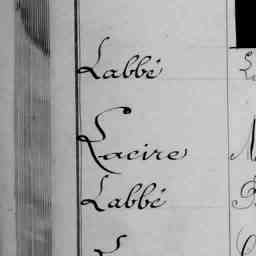 Labbé
Lacire
Labbé